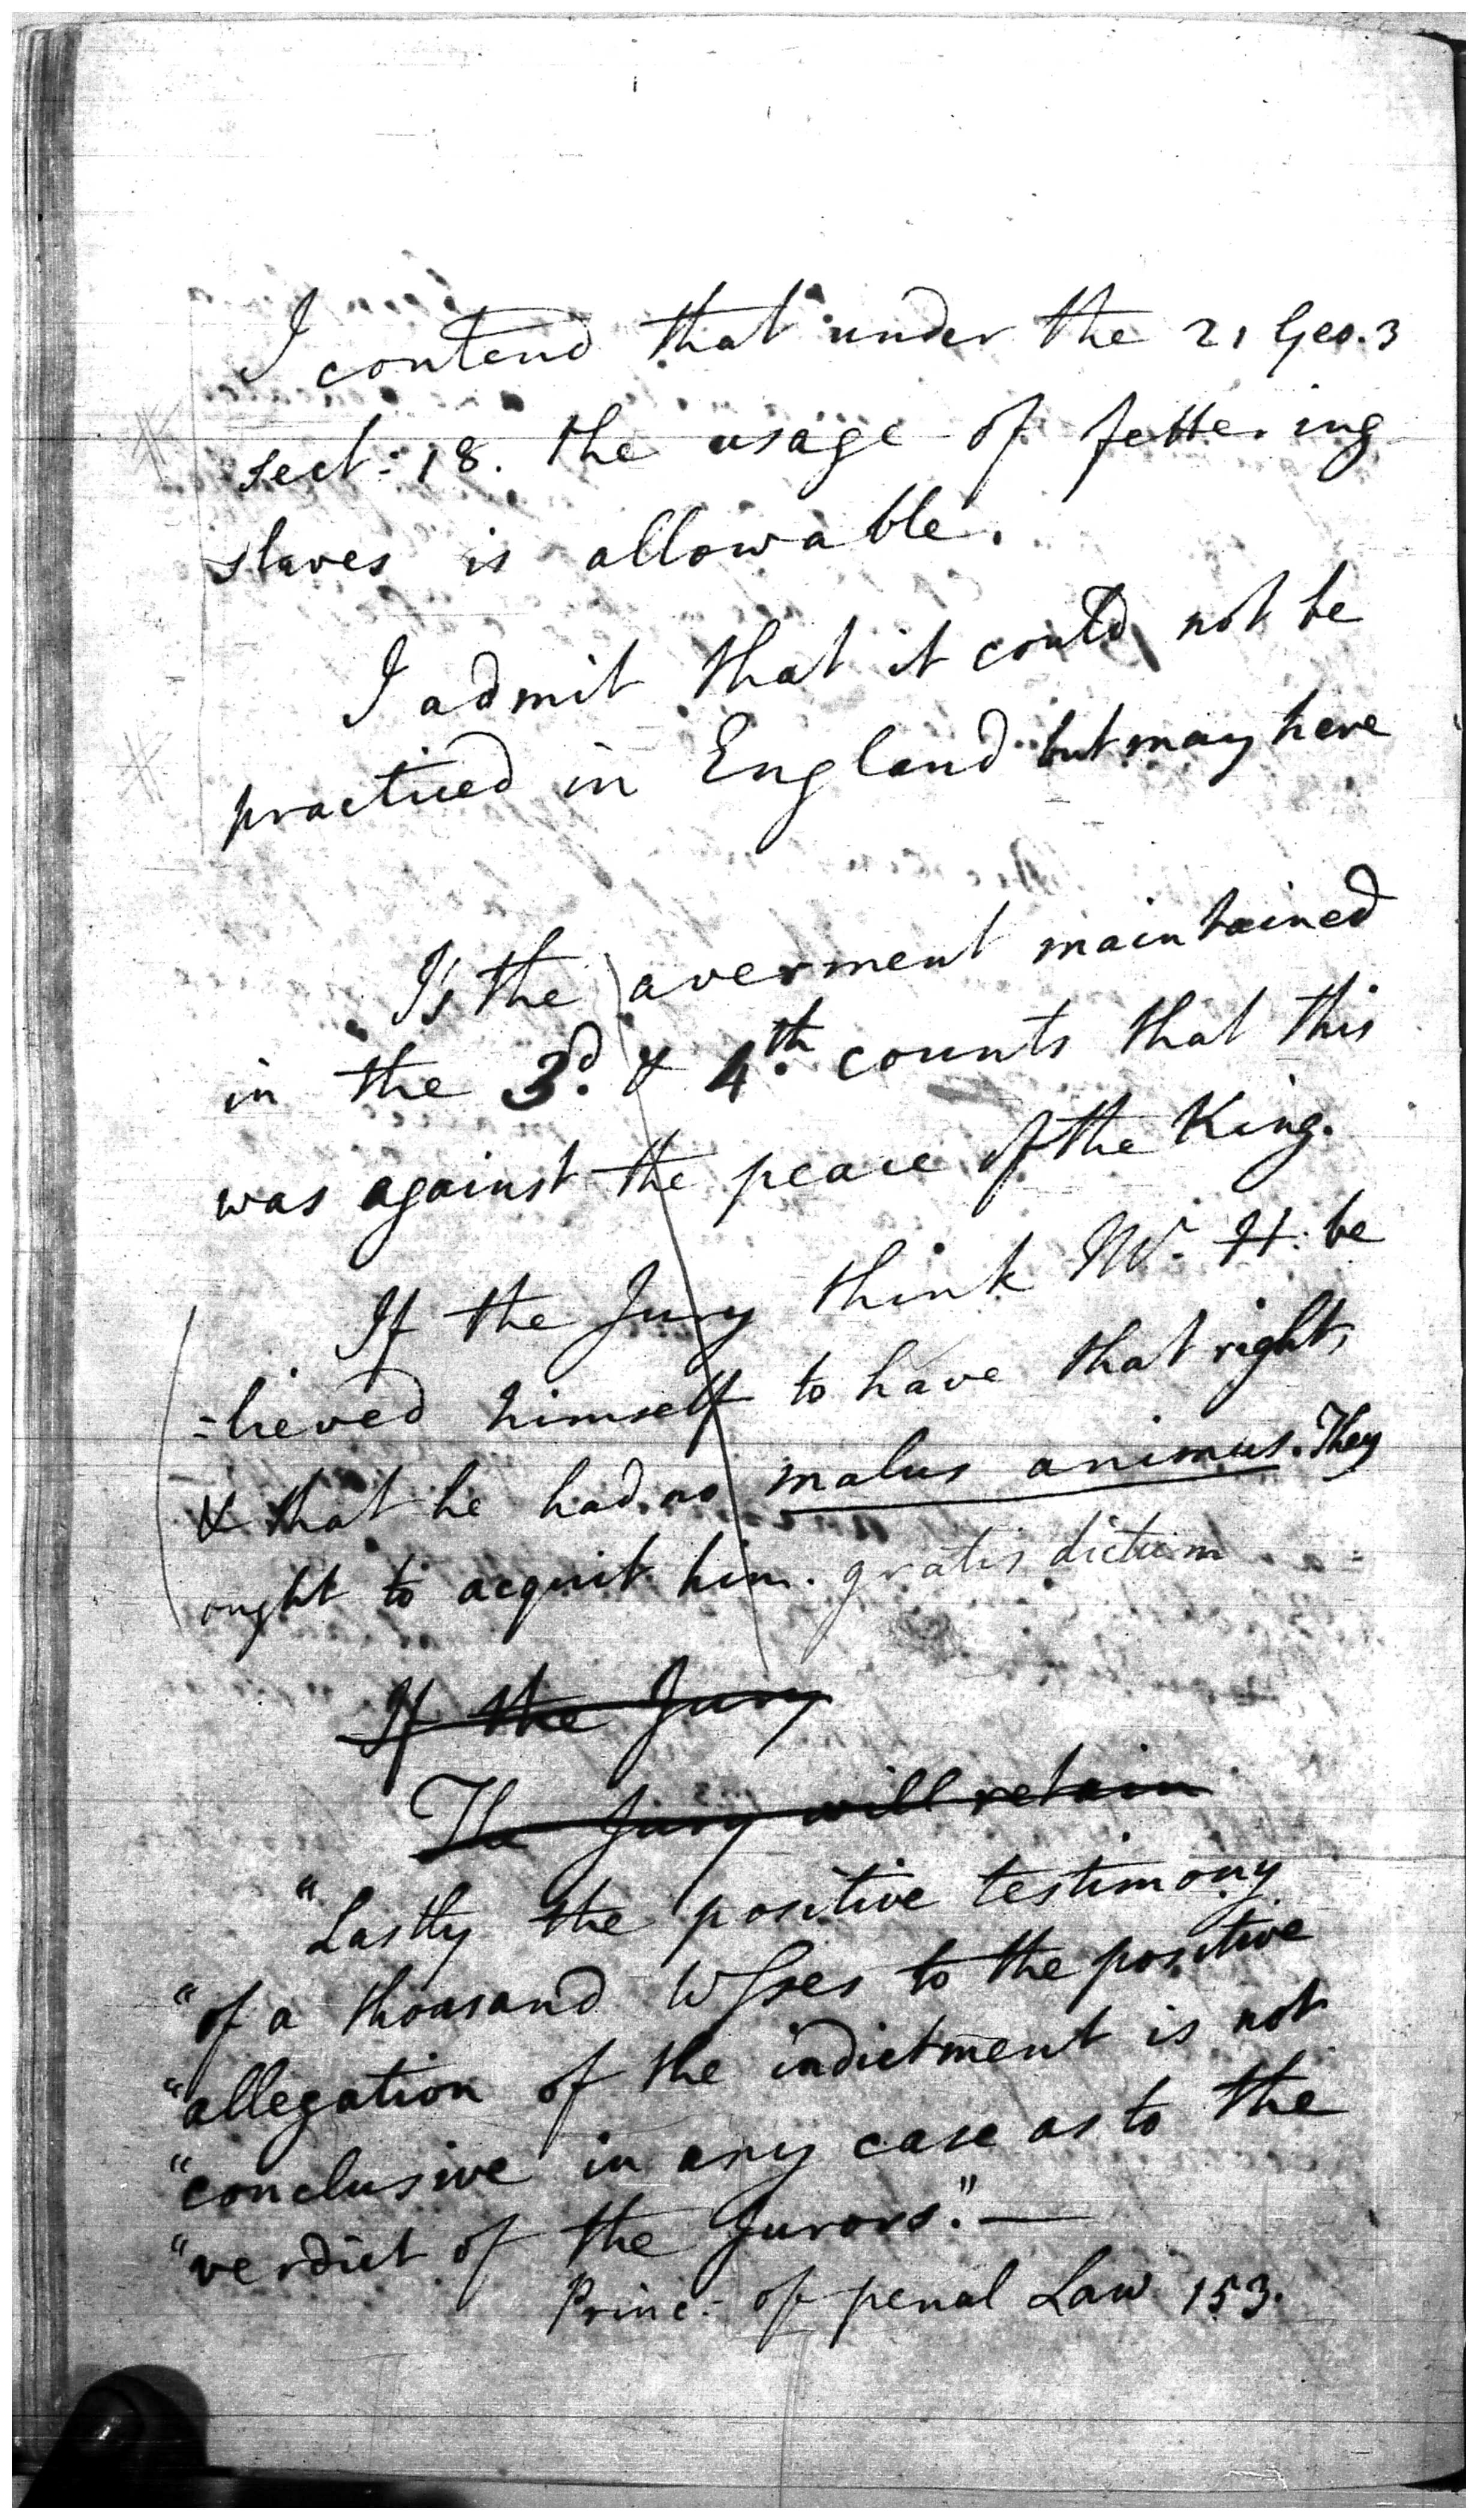 I contend that under the 21 Geo. 3
sect: 18. the usage of fettering
slaves is allowable.
I admit that it could not be
practiced in England but may here
Is the averment maintained
in the 3.d & 4.th counts that this
was against the peace of the King.
If the Jury think Mr. H: be
=lieved himself to have that right,
& that he had no malus animus. They
ought to acquit him. gratis dictum
If the Jury
The Jury will retain
"Lastly the positive testimony
"of a thousand Wsses to the positive
"allegation of the indictment is not
"conclusive in any case as to the
"verdict of the Jurors." —
Princ: of penal Law 153.